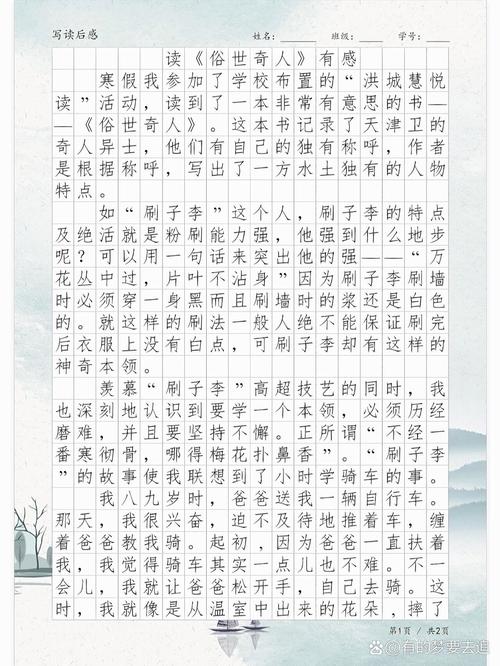 写读后感 姓名: 班级: 学号:
读《俗世奇人》有感
寒假我参加了学校布置的“洪城慧悦
读”活动，读到了一本非常有意思的书—
—《俗世奇人》。这本书记录了天津卫的
奇人异士，他们有自己的独有称呼，作者
是根据称呼，写出了一方水土独有的人物
特点。
如“刷子李”这个人，刷子李的特点
及绝活就是粉刷能力强，他强到什么地步
呢？可以用一句话来突出他的强——“万
花丛中过，片叶不沾身”因为刷子李刷墙
时必须穿一身黑而且刷墙时的浆还是白色
的。就这样的刷法一般人绝不能保证刷完
后衣服上没有白点，可刷子李却有这样的
神奇本领。
羡慕“刷子李”高超技艺的同时，我
也深刻地认识到要学一个本领，必须历经
磨难，并且要坚持不懈。正所谓“不经一
番寒彻骨，哪得梅花扑鼻香”。“刷子李
”的故事使我联想到了小时学骑车的事。
我八九岁时，爸爸送我一辆自行车。
那天，我很兴奋，迫不及待地推着车，缠
着爸爸教我骑。起初，因为爸爸一直扶着
我，我觉得骑车其实一点儿也不难。不一
会儿，我就让爸爸松开手，自己去骑。这
时，我就像是从温室中出来的花朵，摔了
第1页 / 共2页
@有的梦要去追